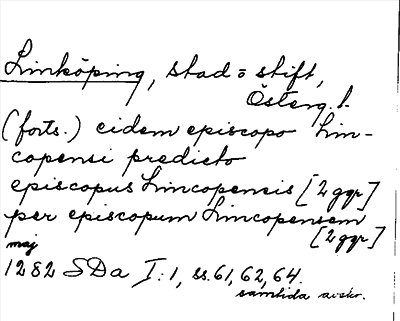 Linköping, stad = stift,
Österg. l.
(forts.) eidem episcopo Lim-
copensi predicto
episcopus Limcopensis [2 ggr]
per episcopum Limcopensem
[2 ggr]
maj
1282 SDa I: 1, ss. 61, 62, 64.
samtida avskr.